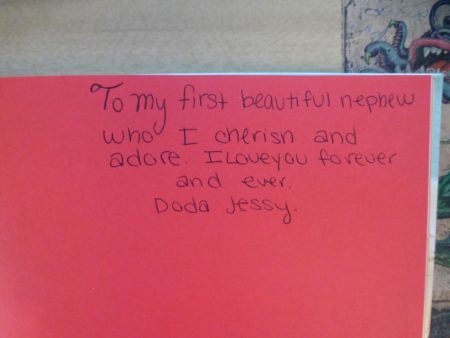 To my first beautiful nephew
who I cherish and
adore. I love you forever
and ever.
Doda Jessy.